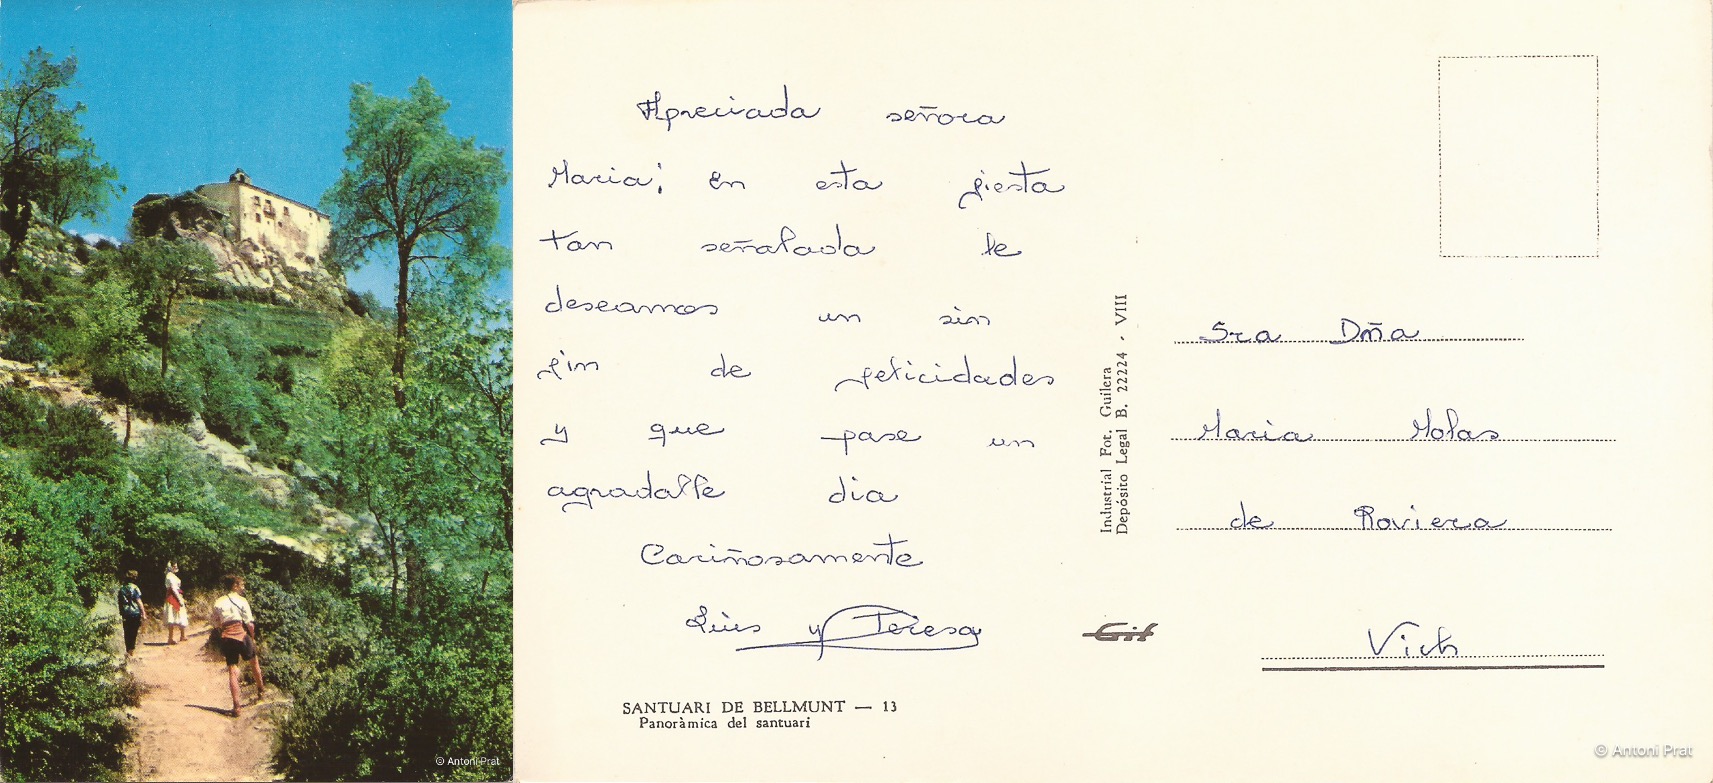 Apreciada señora
Maria; En esta fiesta
tan señalada le
deseamos un sin
fin de felicidades
y que pase un
agradable dia
Cariñosamente
Luis y Teresa
SANTUARI DE BELLMUNT — 13
Panoràmica del santuari
Industrial Fot. Guilera
Depósito Legal B. 22224 - VIII
Sra Dña
Maria Molas
de Roviera
Vich
© Antoni Prat
© Antoni Prat